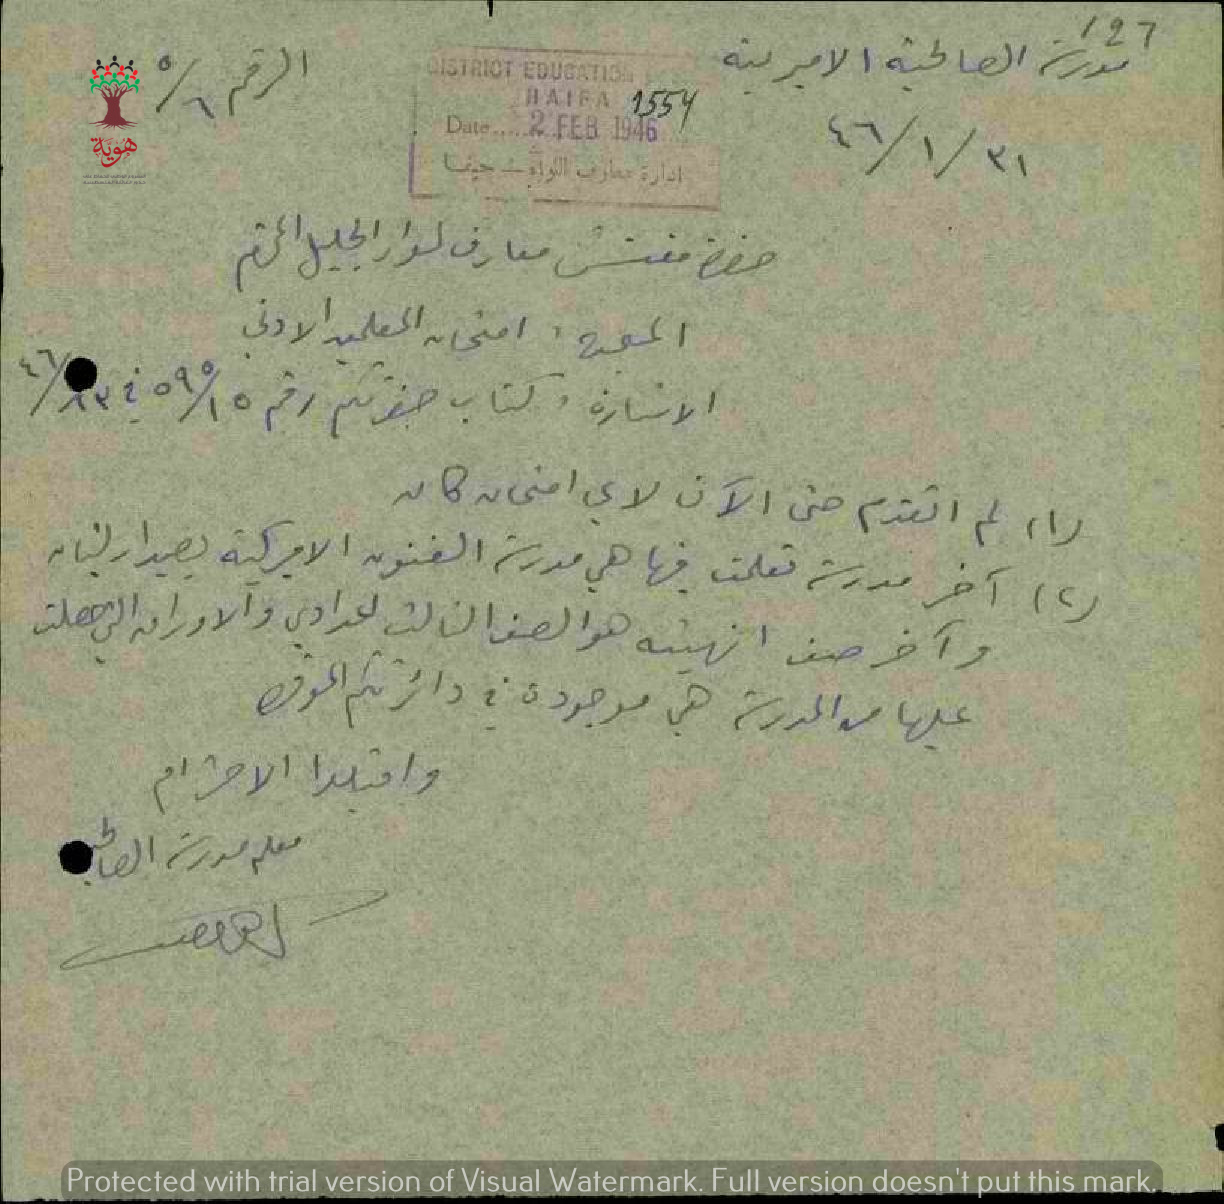 127
مدرسة الصالحية الاميرية
الرقم ٦/٥
DISTRICT EDUCATION
HAIFA 1554
Date..... 2 FEB 1946
ادارة معارف اللواء — حيفا
٣١/١/٤٦
هوية
حضرة مفتش معارف لواء الجليل المحترم
امتحان المعلمين الادنى
الاشارة : كتاب حضرتكم رقم في
(١) لم اتقدم حتى الآن لاي امتحان كان
(٢) آخر مدرسة تعلمت فيها هي مدرسة الفنون الامريكية بصيدا لبنان
وآخر صف انهيته هو الصف الثالث اعدادي والاوراق التي حصلت
عليها من المدرسة هي موجودة في دائرتكم الموقرة
واقبلوا الاحترام
معلم مدرسة الصالحية
Protected with trial version of Visual Watermark. Full version doesn't put this mark.